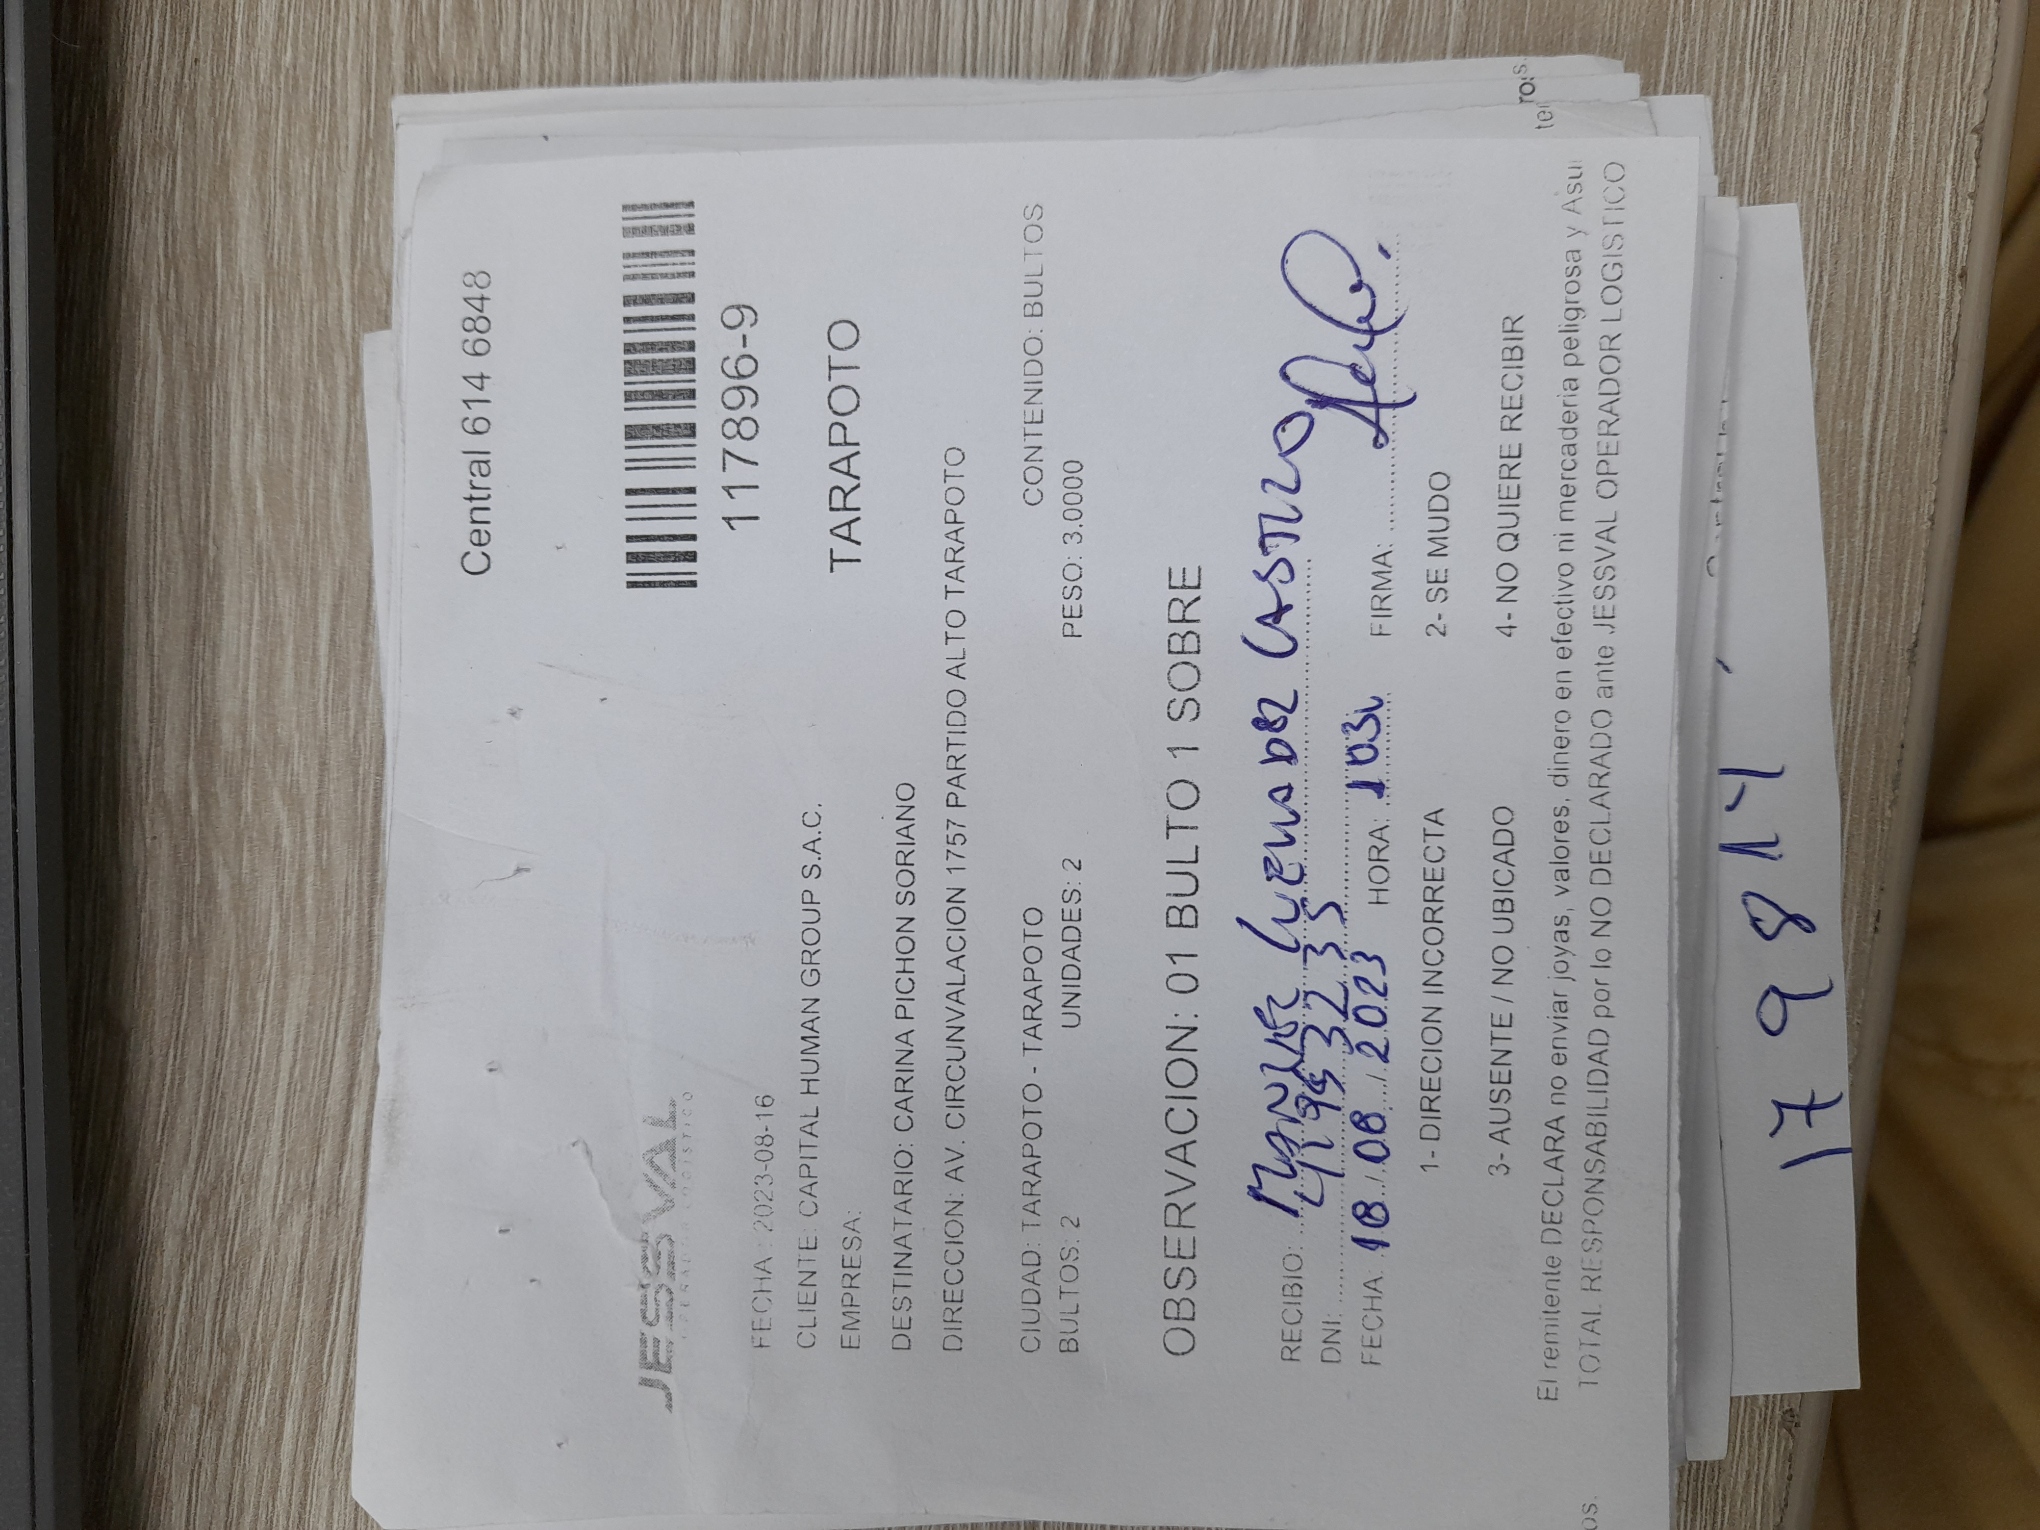 Central 614 6848
JESSVAL
OPERADOR LOGISTICO
117896-9
FECHA : 2023-08-16
CLIENTE: CAPITAL HUMAN GROUP S.A.C.
EMPRESA:
TARAPOTO
DESTINATARIO: CARINA PICHON SORIANO
DIRECCION: AV. CIRCUNVALACION 1757 PARTIDO ALTO TARAPOTO
CIUDAD: TARAPOTO - TARAPOTO CONTENIDO: BULTOS
BULTOS: 2 UNIDADES: 2 PESO: 3.0000
OBSERVACION: 01 BULTO 1 SOBRE
RECIBIO: CASTRO
DNI:
FECHA: 18/08/2023 HORA: FIRMA:
1- DIRECION INCORRECTA 2- SE MUDO
3- AUSENTE / NO UBICADO 4- NO QUIERE RECIBIR
El remitente DECLARA no enviar joyas, valores, dinero en efectivo ni mercaderia peligrosa y Asu
os. TOTAL RESPONSABILIDAD por lo NO DECLARADO ante JESSVAL OPERADOR LOGISTICO
179814